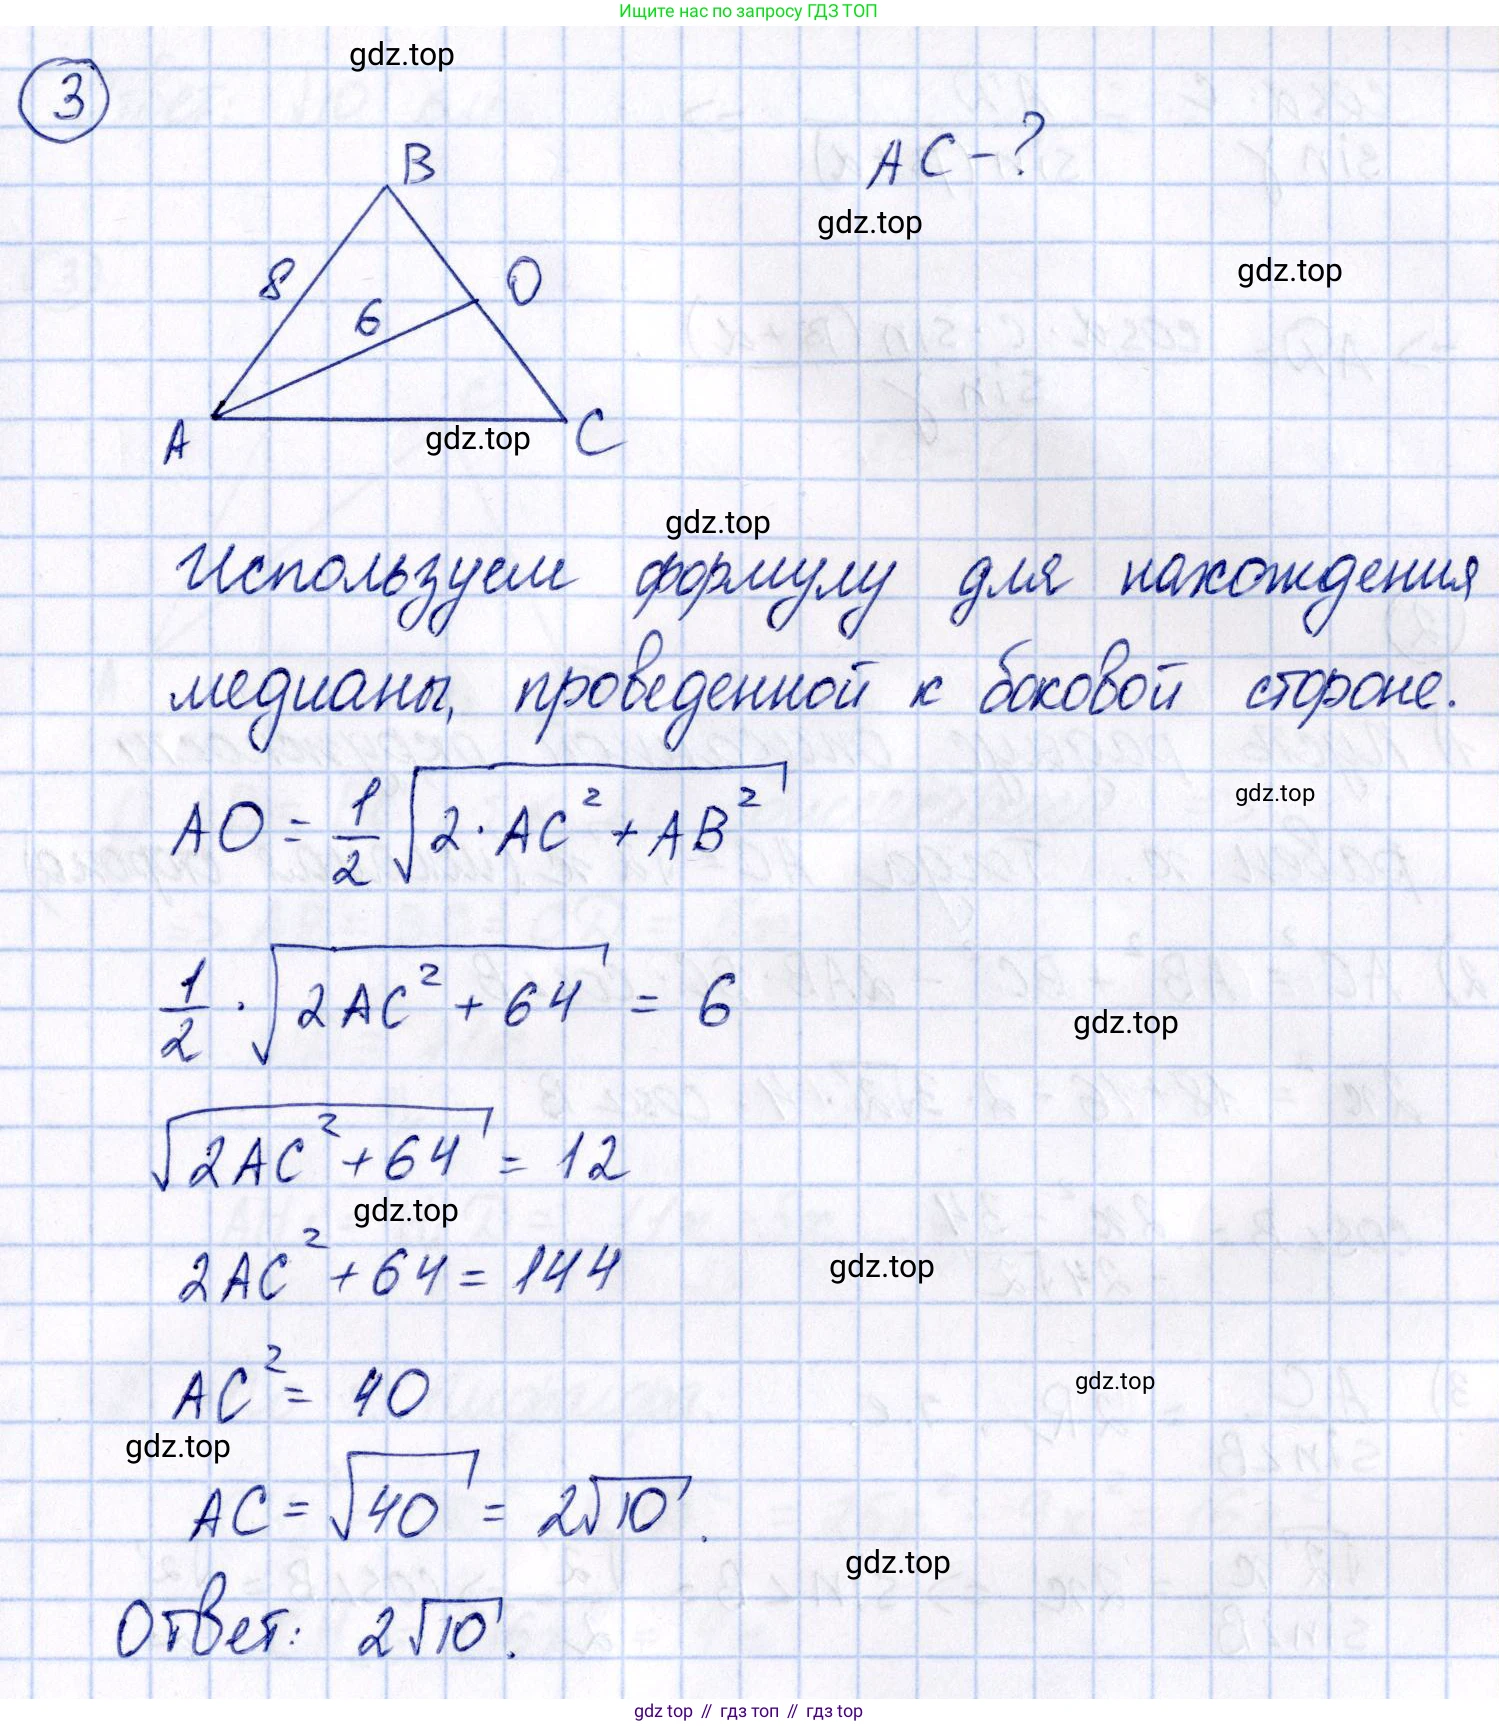 Ищите нас по запросу ГДЗ ТОП
3
gdz.top
B
AC-?
gdz.top
8
O
gdz.top
6
A
gdz.top
C
gdz.top
Используем формулу для нахождения
медианы, проведенной к боковой стороне.
AO = 1/2 √(2·AC² + AB²)
gdz.top
1/2 · √(2AC² + 64) = 6
gdz.top
√(2AC² + 64) = 12
gdz.top
2AC² + 64 = 144
gdz.top
AC² = 40
gdz.top
gdz.top
AC = √40 = 2√10.
gdz.top
Ответ: 2√10.
gdz top // гдз топ // гдз top